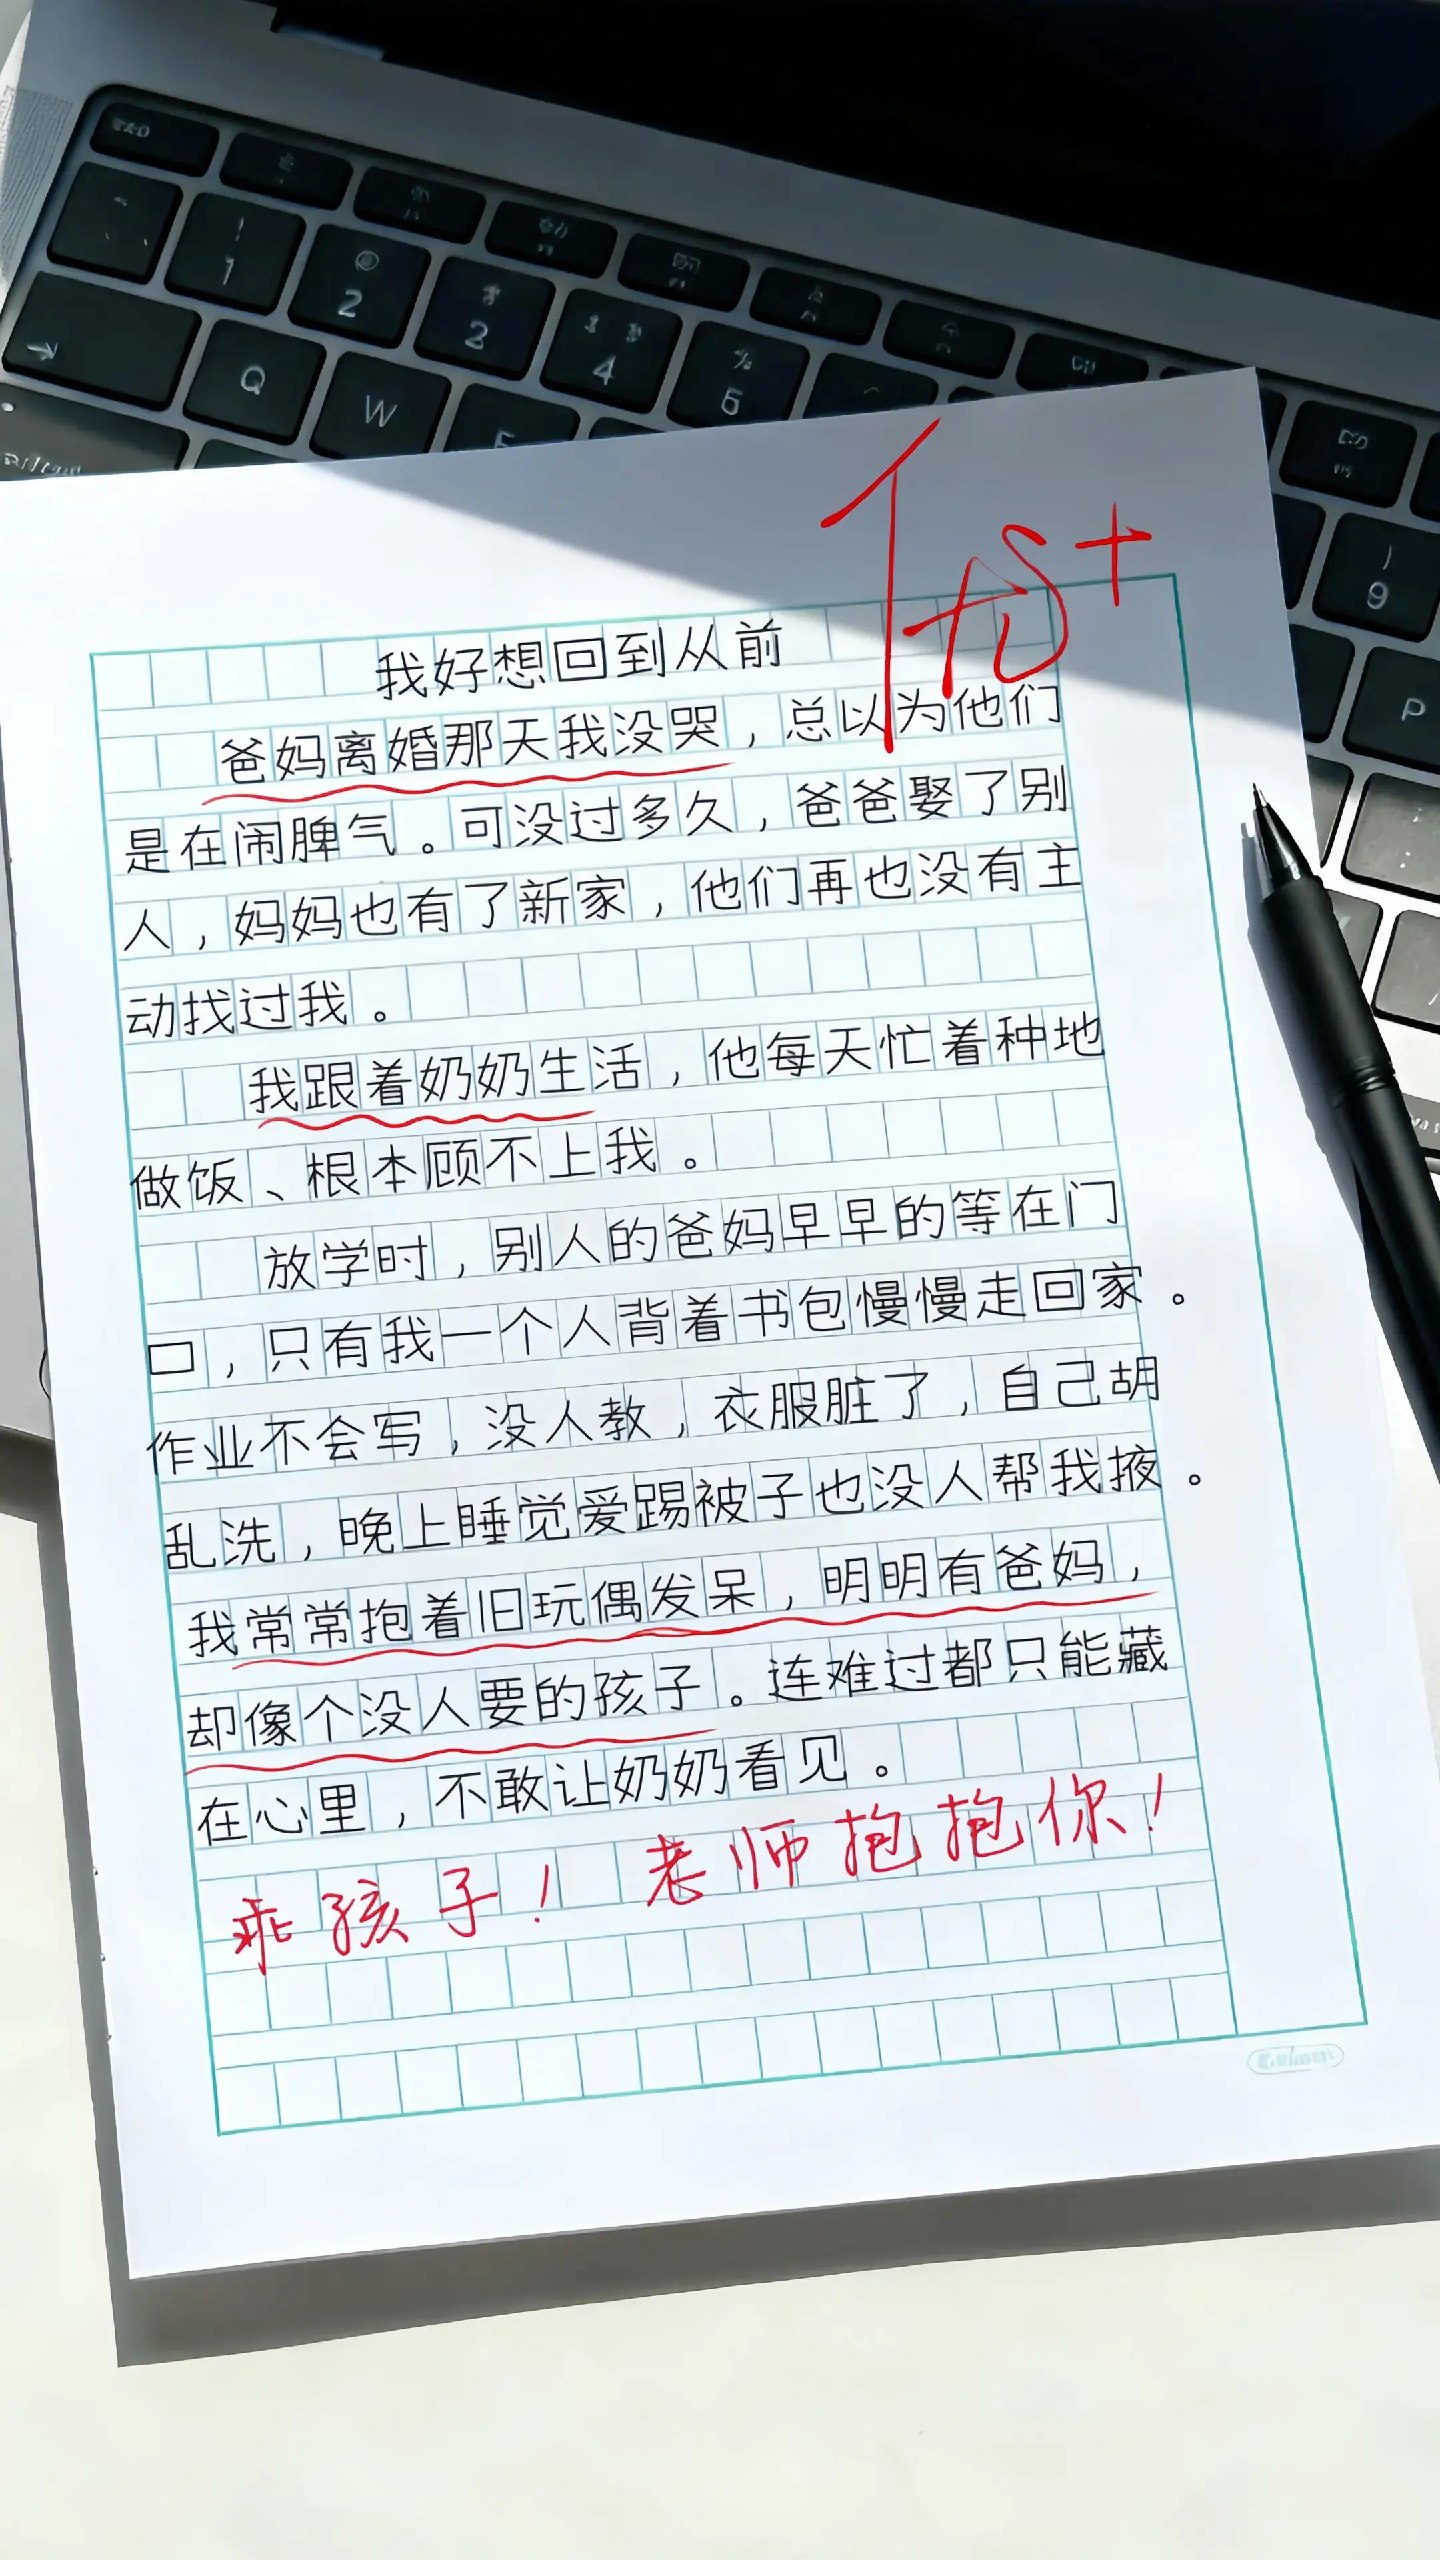 我好想回到从前
爸妈离婚那天我没哭，总以为他们
是在闹脾气。可没过多久，爸爸娶了别
人，妈妈也有了新家，他们再也没有主
动找过我。
我跟着奶奶生活，他每天忙着种地
做饭、根本顾不上我。
放学时，别人的爸妈早早的等在门
口，只有我一个人背着书包慢慢走回家。
作业不会写，没人教，衣服脏了，自己胡
乱洗，晚上睡觉爱踢被子也没人帮我掖。
我常常抱着旧玩偶发呆，明明有爸妈，
却像个没人要的孩子。连难过都只能藏
在心里，不敢让奶奶看见。
乖孩子！老师抱抱你！
1
2
3
4
5
Q
W
9
P